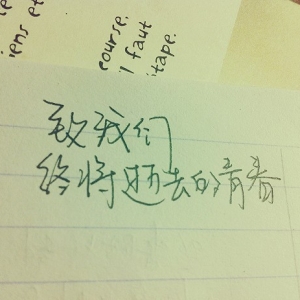 iens et
course.
l faut
étape.
致我们
终将逝去的青春